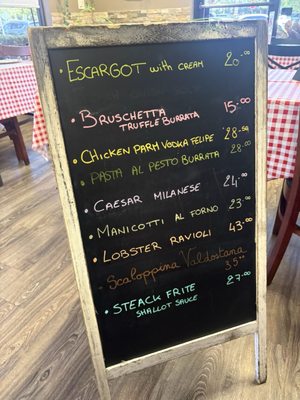 . ESCARGOT with CREAM 20.00
. BRUSCHETTA 15.00
TRUFFLE BURRATA
. CHICKEN PARM VODKA FELIPE 28.50
. PASTA AL PESTO BURRATA 28.00
. CAESAR MILANESE 24.00
. MANICOTTI AL FORNO 23.00
. LOBSTER RAVIOLI 43.00
. SCALOPPINA VALDOSTANA
35.00
. STEACK FRITE 27.00
SHALLOT SAUCE